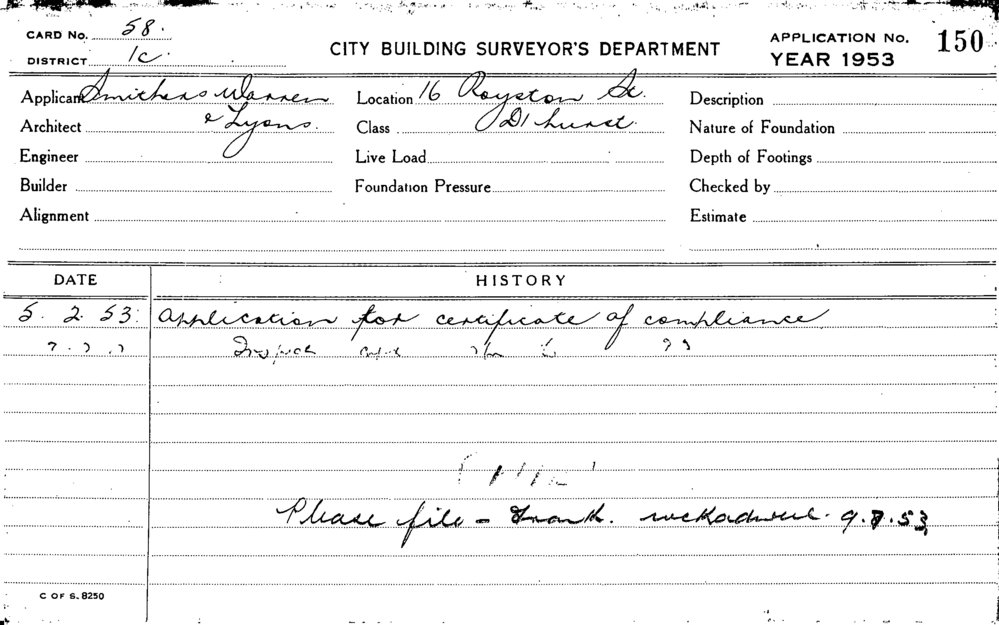 CARD No. 58.
DISTRICT 1C.
CITY BUILDING SURVEYOR'S DEPARTMENT
APPLICATION No. 150
YEAR 1953
Applicant Smithers Warren
Architect & Lyons.
Engineer
Builder
Alignment
Location 16 Royston St.
Class D'hurst.
Live Load
Foundation Pressure
Description
Nature of Foundation
Depth of Footings
Checked by
Estimate
DATE HISTORY
5. 2. 53. Application for certificate of compliance
Please file - 53
C OF S. 8250